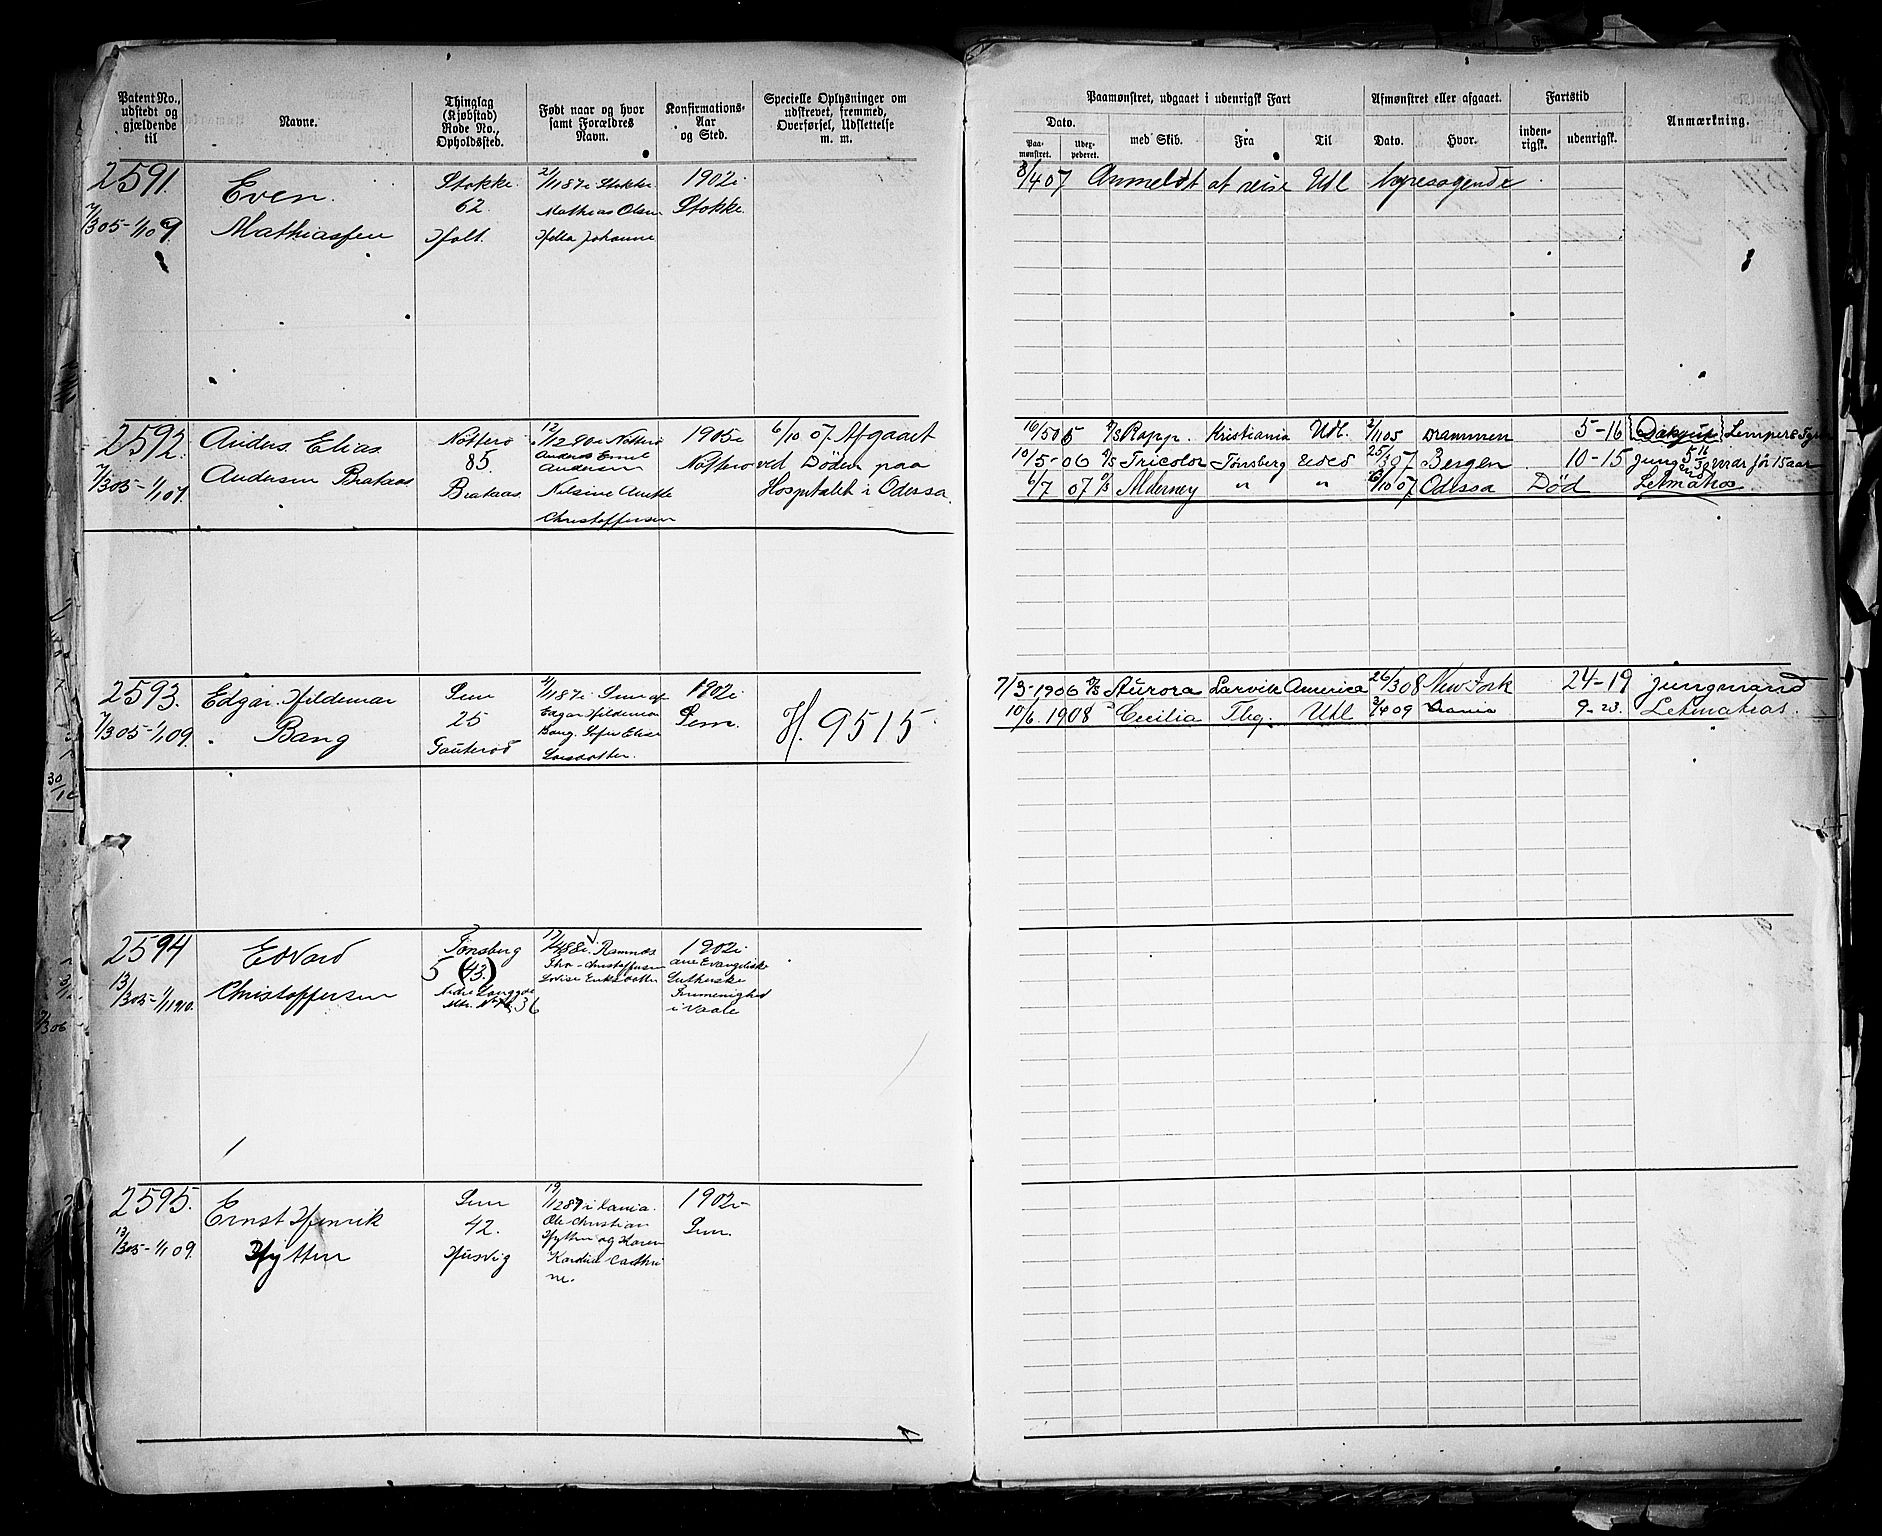 Patent No., udstedt og gjældende til
Navne.
Thinglag (Kjøbstad) Rode No., Opholdssted.
Født naar og hvor samt Forældres Navn.
Konfirmations- Aar og Sted.
Specielle Oplysninger om udskrevet, fremmed, Overførsel, Udslettelse m. m.
Paamønstret, udgaaet i udenrigsk Fart
Afmønstret eller afgaaet.
Fartstid
Anmærkning.
Dato.
med Skib.
Fra
Til
Dato.
Hvor.
inden- rigsk.
udenrigsk.
Paa- mønstret.
2591.
7/3 05-1/1 09
Even
Mathiassen
Stokke
62.
Holt.
2/1 87 i Stokke
Mathias Olsen
Helea Johanne
1902 i
Stokke.
8/4 07 Anmeldt at reise Udl
2592.
7/3 05-1/1 07
Anders Elias
Andersen Brataas
Nøtterø
85.
Brataas
12/12 80 i Nøtterø
Anders Ernst
Andersen
Nilsine Amalie
Christoffersen
1905 i
Nøtterø
6/10 07 Afgaaet
ved Døden paa
Hospitalet i Odessa.
16/5 05 Rapp. Kristiania Udl. 2/11 05 Drammen 5-16
10/5-06 Tricolor Tønsberg Udld 25/3 07 Bergen 10-15
6/7 07 Alderney " " 6/10 07 Odessa Død
Letmatros
2593.
7/3 05-1/1 09.
Edgar Hildemar
Bang
Sem
25
Gauterød
2/1 87 i Sem af
Edgar Hildemar
Bang. Sofie Elise
Larsdatter.
1902 i
Sem.
H. 9515
7/3-1906 Aurora Larvik America 26/3 08 New York 24-19 Jungmand
10/6 1908 Cecilia Tbg. Udl 2/4 09 9-23. Letmatros.
2594
13/3 05-1/1 1910.
Edvard
Christoffersen
Tønsberg
5 (43.)
Nedre Langgade
Mtr. No 36
i Ramnæs
Christoffersen
Lovise Eriksdatter
1902 i
den Evangeliske
Lutherske
Frimenighed
i Vaale
2595.
13/3 05-1/1 09.
Ernst Henrik
Hytten
Sem
42.
Husvig
19/12 87 i Rania.
Ole Christian
Hytten og Karen
Kardine Cathri
ne.
1902 i
Sem.